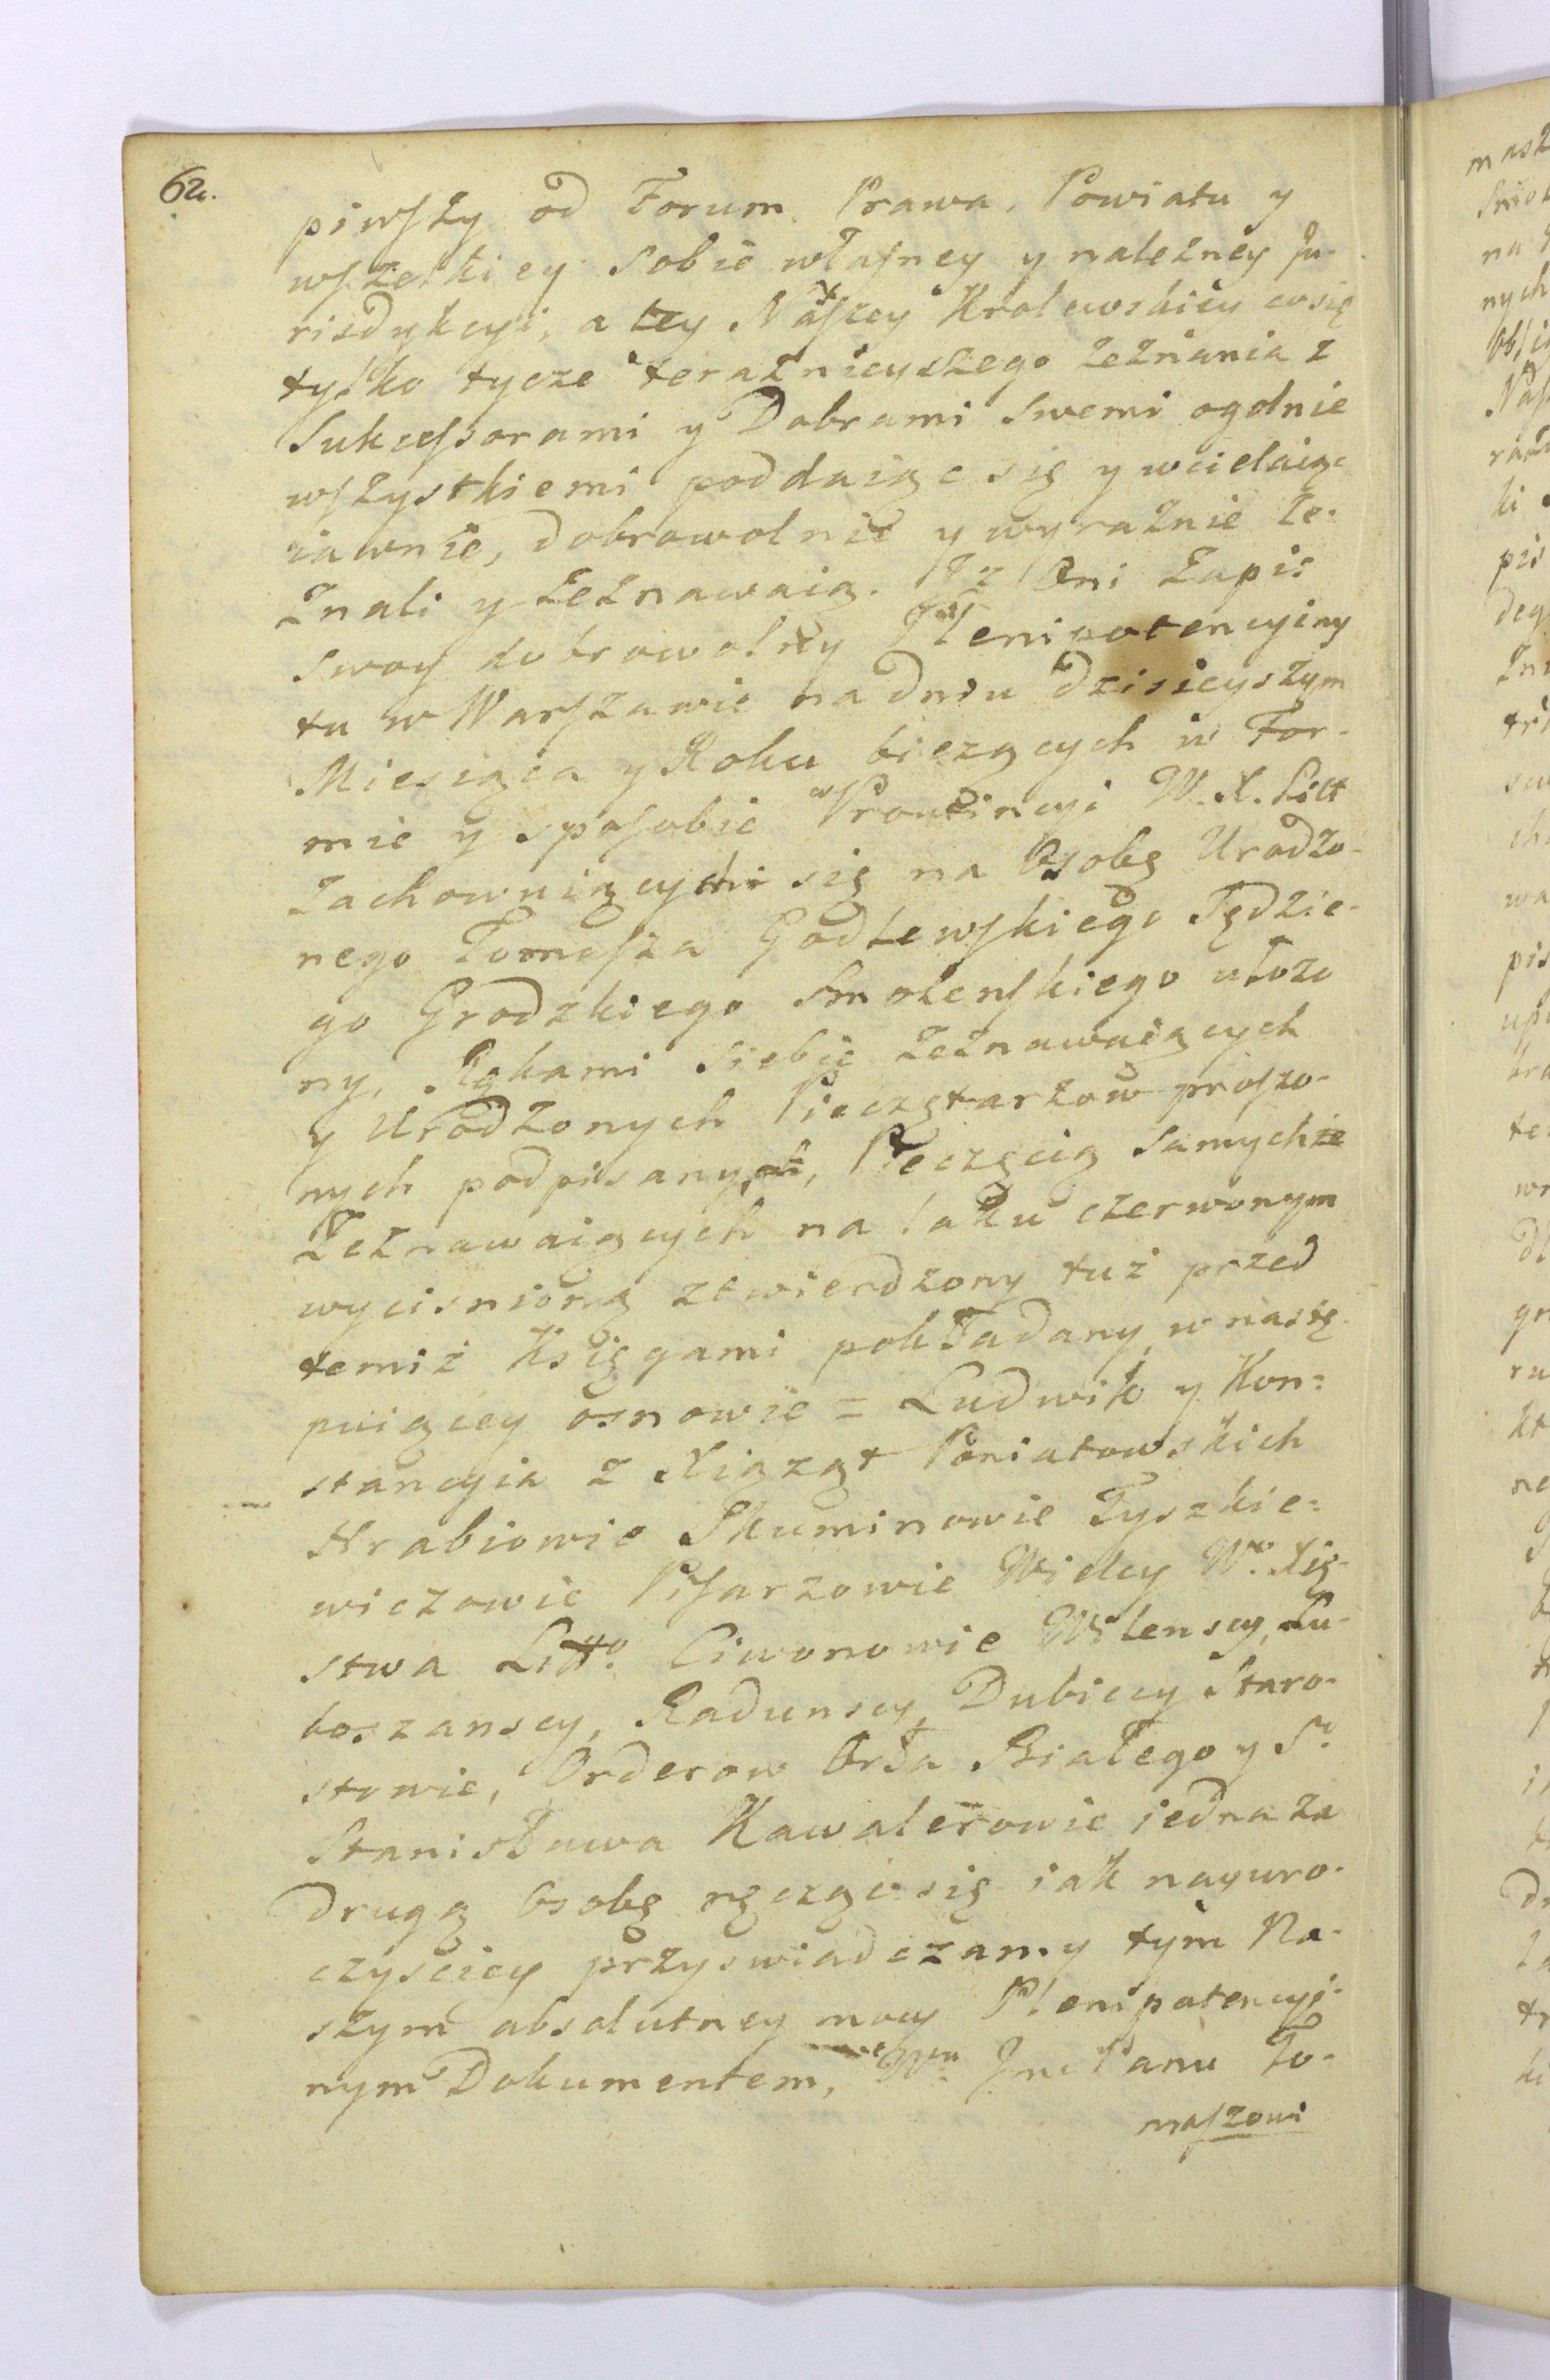 62.
piwszy od Forum. Prawa, Powiatu y
wszelkiey sobie własney y należney Ju-
risdykcyi, a tey Naszey Krolewskiey cosię
tylko tycze terazńieyszego zeznania z
Sukcessorami y Dobrami swemi ogolnie
wszystkiemi poddaiąc się y wcielaiąc
iawnie, dobrowolnie y wyraznie ze-
znali y zeznawaią. Iz Oni Zapis
swoy dobrowolny Plenipotencyiny
tu w Warszawie na dniu dzisieyszym
Miesiąca y Roku bieżących w For-
mie y sposobie w Prowincyi W. X. Litt
zachowuiących się na Osobę Urodzo-
nego Tomasza Godlewskiego Sędzie-
go Grodzkiego Smolenskiego ułożo
ny, Rękami siebie zeznawaiących
y Urodzonych Pieczętarzow proszo-
nych podpisany, Pieczęcią samychże
Zeznawaiących na laku czerwonym
wycisnioną ztwierdzony tuż przed
temiż Księgami pokładany, w nastę-
puiącey osnowie = Ludwik y Kon=
stancyia z Xiążąt Poniatowskich
Hrabiowie Skuminowie Tyszkie=
wiczowie Pisarzowie Wielcy Wo. Xię-
stwa Litto. Ciwonowie Wilenscy, Lu-
boszanscy, Radunscy, Dubiccy Staro-
stowie, Orderow Orła Białego y So.
Stanisława Kawalerowie jedna za
drugą Osobę ręcząc się iak nayuro-
czyściey przyswiadczamy tym Na-
szym absolutney mocy Plenipotencyi-
nym Dokumentem, Wmu Jmć Panu To-
maszowi